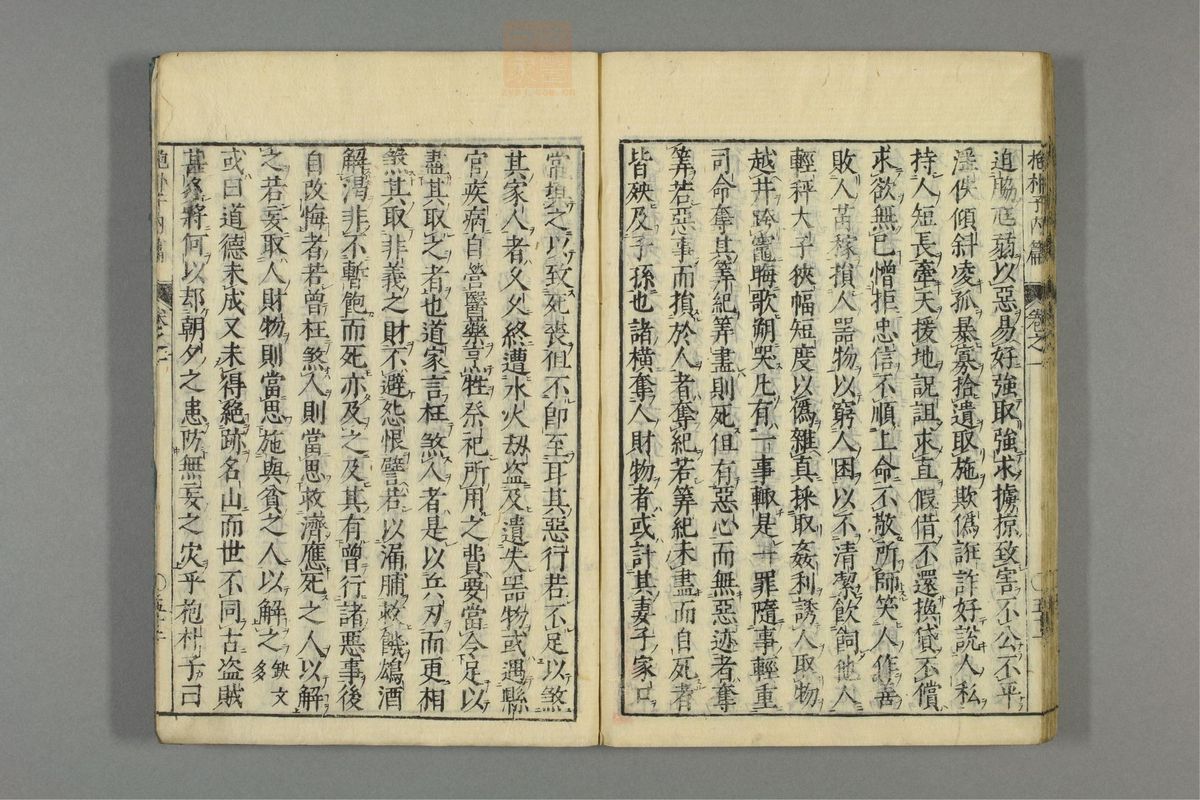 抱朴子内篇 卷之一
迫脇尫弱以惡易好強取強求擄掠致害不公不平
淫佚傾斜凌孤暴寡拾遺取施欺僞誑詐好說人私
持人短長牽天援地說詛求直假借不還換貸不償
求欲無已憎拒忠信不順上命不敬所師笑人作善
敗人苗稼損人器物以窮人困以不清潔飲飼他人
輕秤大斗狹幅短度以僞雜真採取姦利誘人取物
越井跨竈晦歌朔哭凡有一事輙是一罪隨事輕重
司命奪其筭紀筭盡則死但有惡心而無惡迹者奪
筭若惡事而損於人者奪紀若筭紀未盡而自死者
皆殃及子孫也諸橫奪人財物者或計其妻子家口
當塡之以致死喪但不即至耳其惡行若不足以煞
其家人者久久終遭水火劫盜及遺失器物或遇縣
官疾病自營醫藥烹牲祭祀所用之費要當令足以
盡其取之者也道家言枉煞人者是以兵刃而更相
煞其取非義之財不避怨恨譬若以漏脯救饑鴆酒
解渴非不暫飽而死亦及之及其有曾行諸惡事後
自改悔者若曾枉煞人則當思救濟應死之人以解
之若妄取人財物則當思施與貧之人以解之 缺文多
或曰道德未成又未得絶跡名山而世不同古盗賊
甚多將何以却朝夕之患防無妄之災乎抱朴子曰
抱朴子内篇